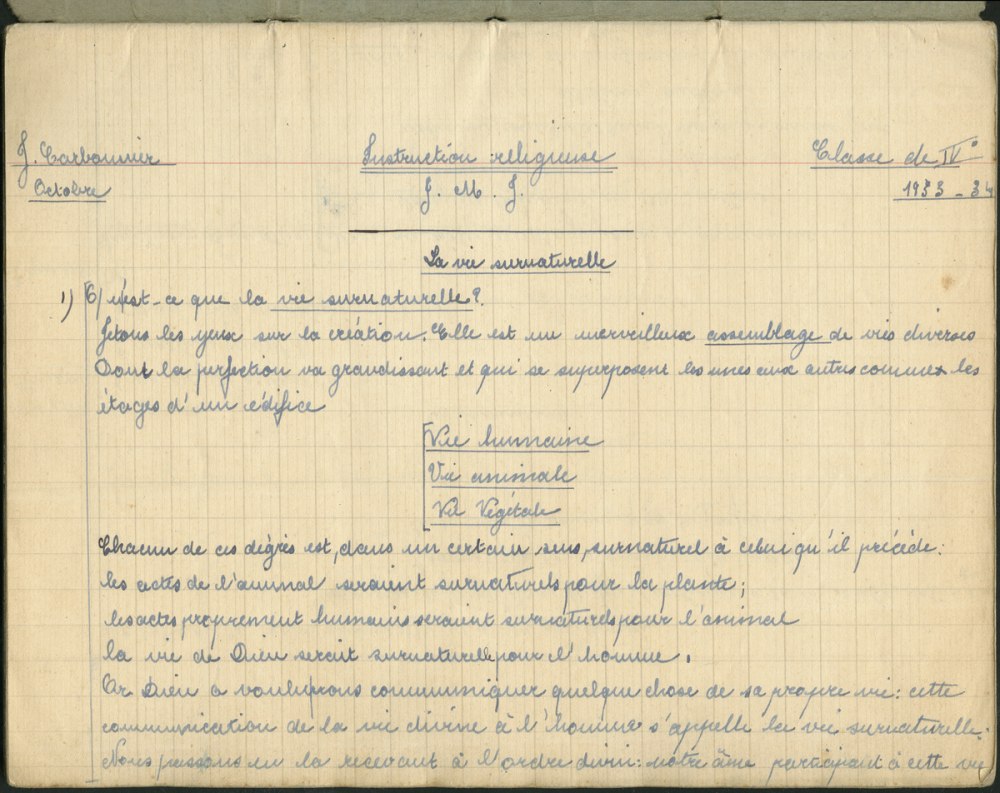 J. Carbonnier Instruction religieuse Classe de IV°
Octobre J. M. J. 1933-34
La vie surnaturelle
1) Q/ u'est-ce que la vie surnaturelle?
Jetons les yeux sur la création. Elle est un merveilleux assemblage de vies diverses
Dont la perfection va grandissant et qui se superposent les unes aux autres comme les
étages d'un édifice
Vie humaine
Vie animale
Vie Végétale
Chacun de ces dégrés est, dans un certain sens, surnaturel à celui qu'il précéde:
les actes de l'animal seraient surnaturels pour la plante;
les actes proprement humains seraient surnaturels pour l'animal
la vie de Dieu serait surnaturelle pour l'homme.
Or Dieu a voulu nous communiquer quelque chose de sa propre vie: cette
communication de la vie divine à l'homme s'appelle la vie surnaturelle.
Nous passons en la recevant à l'ordre divin: notre âme participant à cette vie